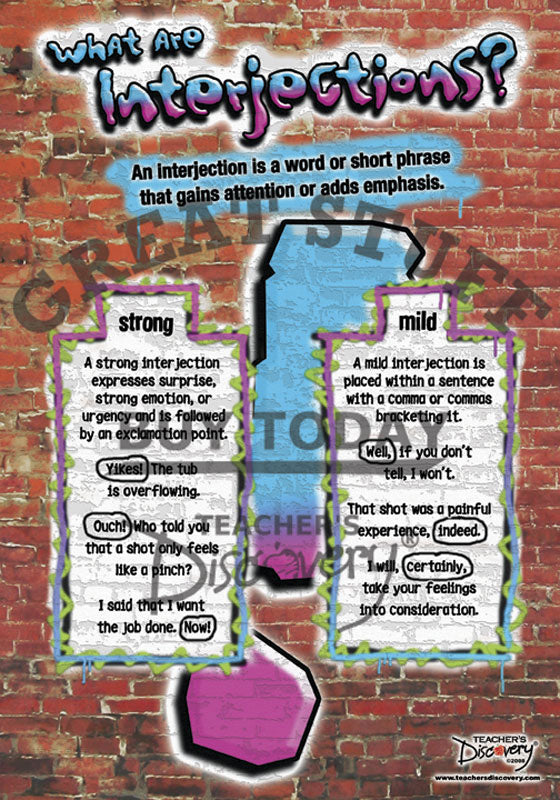 What Are
Interjections?
An interjection is a word or short phrase
that gains attention or adds emphasis.
GREAT STUFF
strong
A strong interjection
expresses surprise,
strong emotion, or
urgency and is followed
by an exclamation point.
Yikes! The tub
is overflowing.
Ouch! Who told you
that a shot only feels
like a pinch?
I said that I want
the job done. Now!
mild
A mild interjection is
placed within a sentence
with a comma or commas
bracketing it.
Well, if you don't
tell, I won't.
That shot was a painful
experience, indeed.
I will, certainly,
take your feelings
into consideration.
BUY TODAY
TEACHER'S
Discovery®
TEACHER'S
Discovery®
©2008
www.teachersdiscovery.com